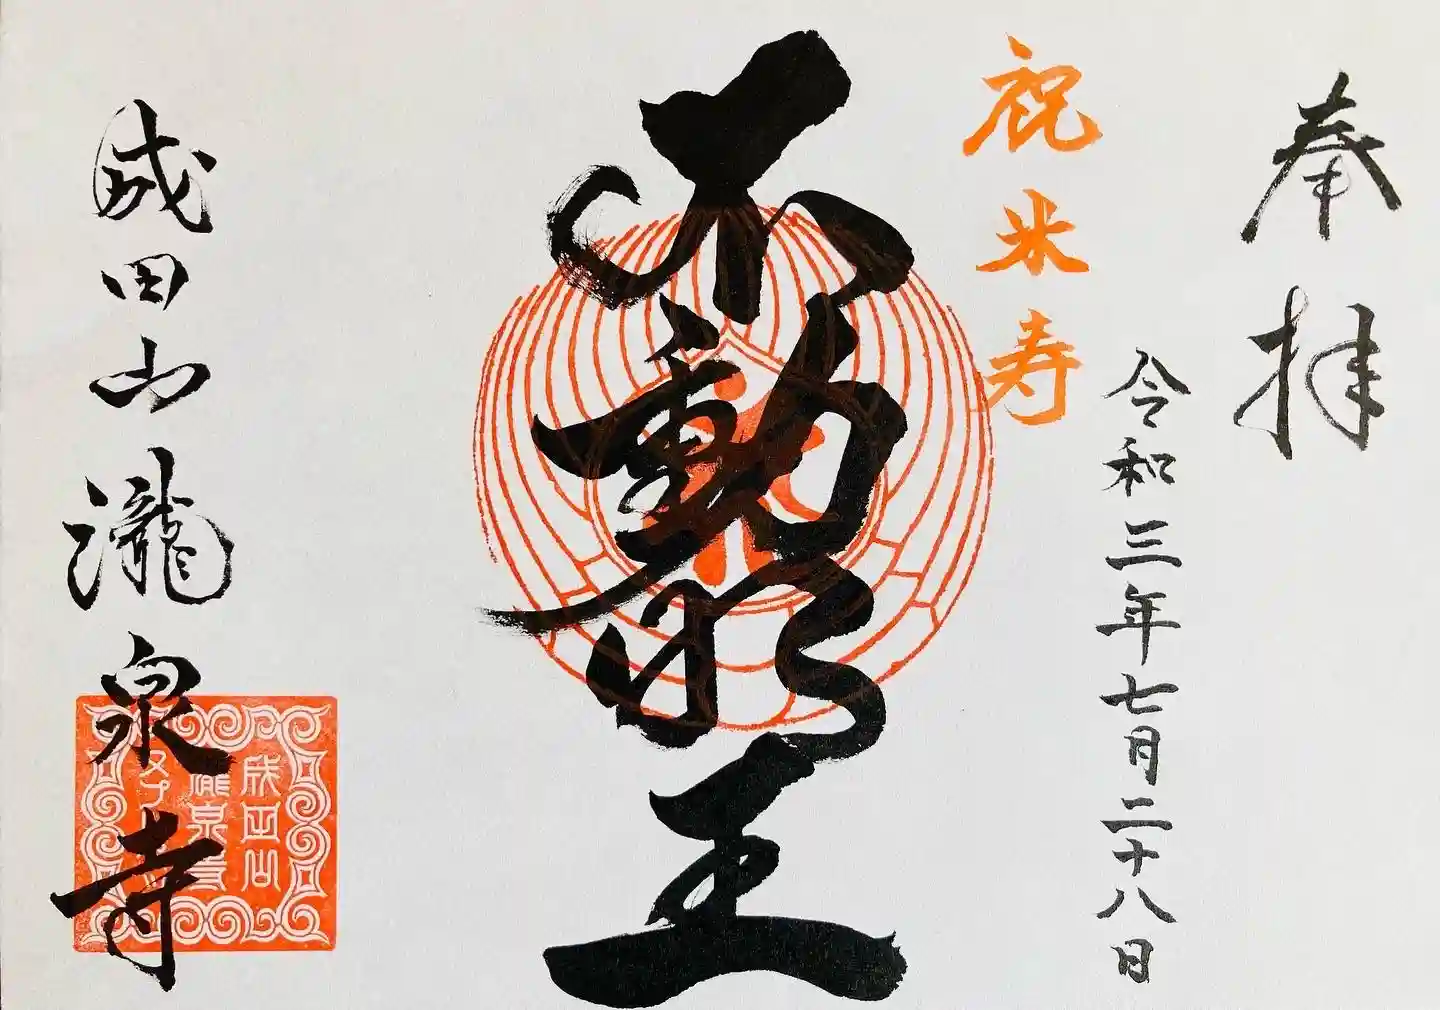 奉拝
令和三年七月二十八日
祝米寿
不動明王
成田山瀧泉寺
成田山
瀧泉寺